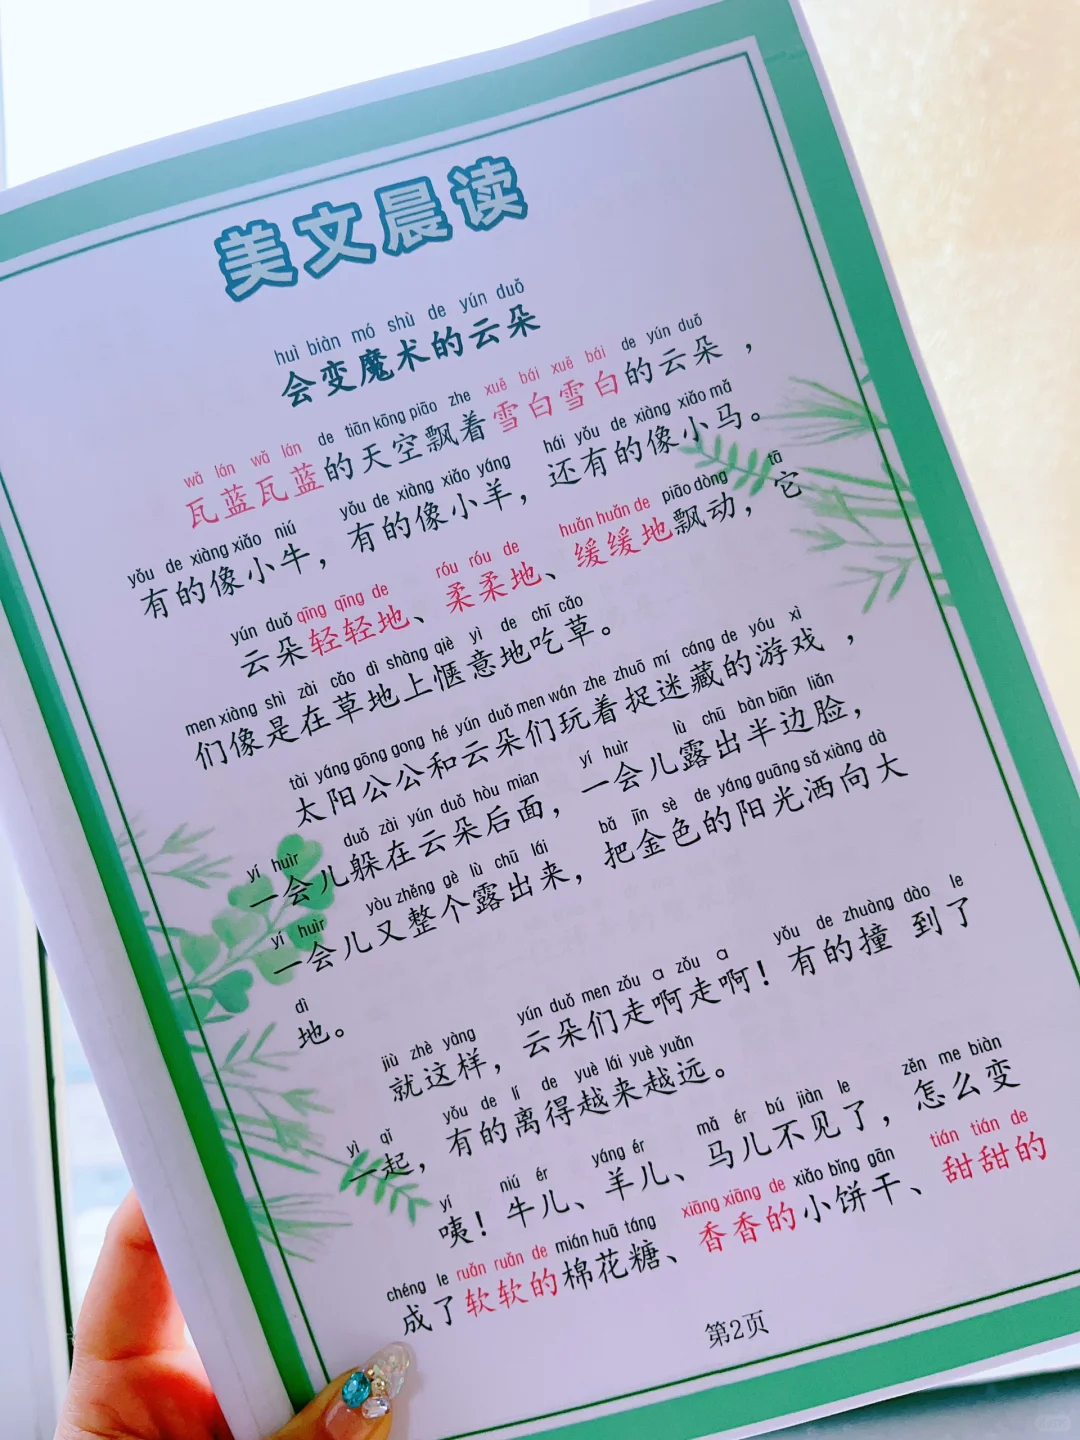 美文晨读
huì biàn mó shù de yún duǒ
会变魔术的云朵
wǎ lán wǎ lán de tiān kōng piāo zhe xuě bái xuě bái de yún duǒ
瓦蓝瓦蓝的天空飘着雪白雪白的云朵，
yǒu de xiàng xiǎo niú yǒu de xiàng xiǎo yáng hái yǒu de xiàng xiǎo mǎ
有的像小牛，有的像小羊，还有的像小马。
yún duǒ qīng qīng de róu róu de huǎn huǎn de piāo dòng tā
云朵轻轻地、柔柔地、缓缓地飘动，它
men xiàng shì zài cǎo dì shàng qiè yì de chī cǎo
们像是在草地上惬意地吃草。
tài yáng gōng gong hé yún duǒ men wán zhe zhuō mí cáng de yóu xì
太阳公公和云朵们玩着捉迷藏的游戏，
yí huìr duǒ zài yún duǒ hòu mian yí huìr lù chū bàn biān liǎn
一会儿躲在云朵后面，一会儿露出半边脸，
yí huìr yòu zhěng gè lù chū lái bǎ jīn sè de yáng guāng sǎ xiàng dà
一会儿又整个露出来，把金色的阳光洒向大
dì
地。
jiù zhè yàng yún duǒ men zǒu a zǒu a yǒu de zhuàng dào le
就这样，云朵们走啊走啊！有的撞 到了
yì qǐ yǒu de lí de yuè lái yuè yuǎn
一起，有的离得越来越远。
yí niú ér yáng ér mǎ ér bú jiàn le zěn me biàn
咦！牛儿、羊儿、马儿不见了，怎么变
chéng le ruǎn ruǎn de mián huā táng xiāng xiāng de xiǎo bǐng gān tián tián de
成了软软的棉花糖、香香的小饼干、甜甜的
第2页